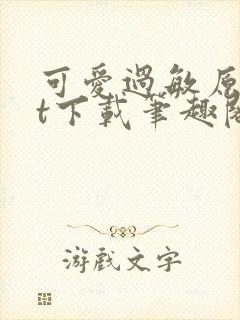 可愛過敏原
t下載筆趣閣
游戲文字